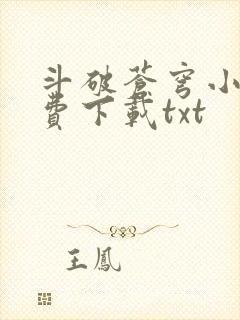 斗破蒼穹小
費下載txt
王鳳